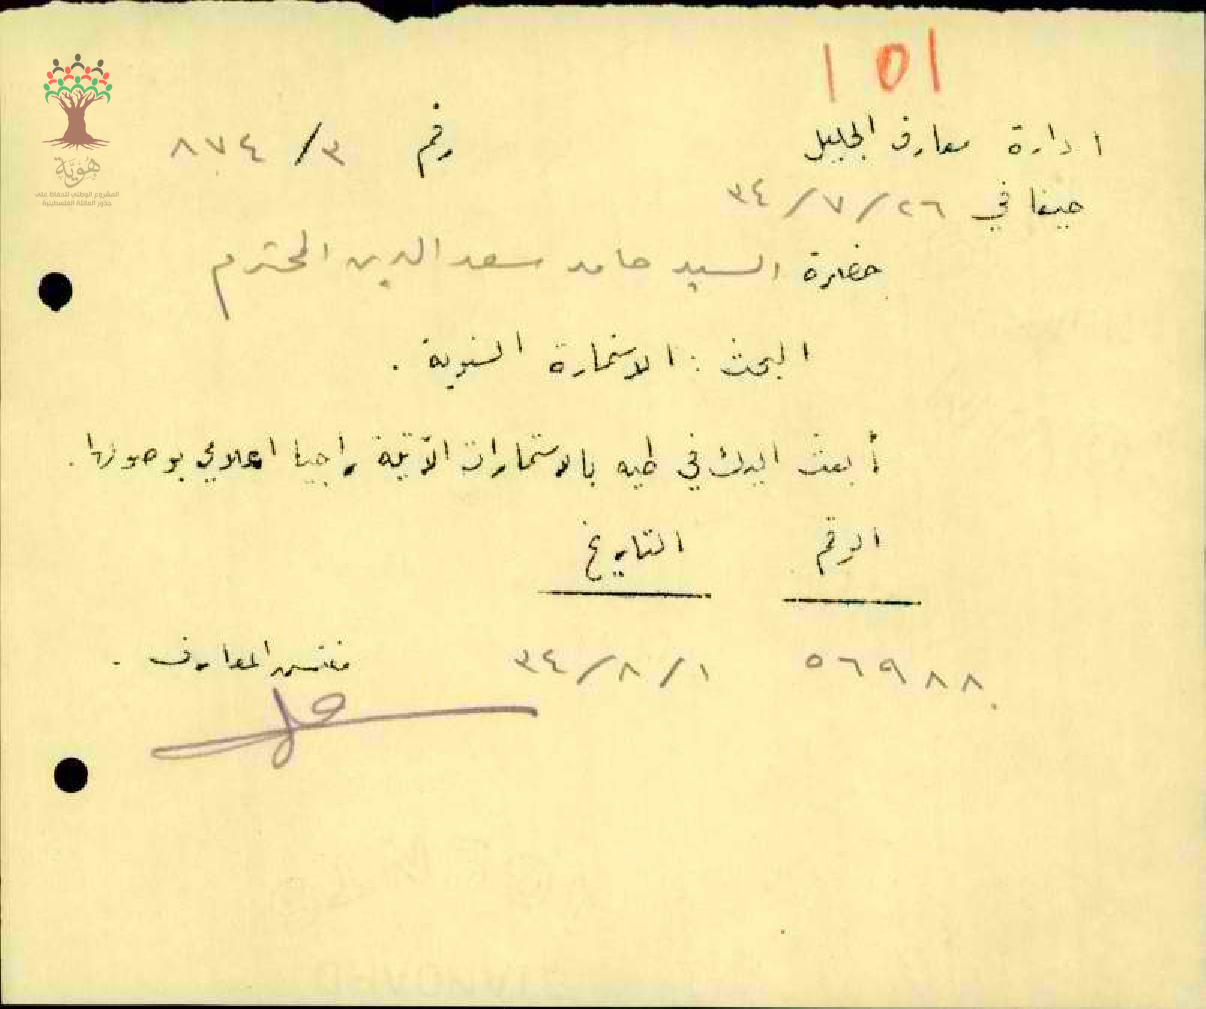 101
ادارة معارف الجليل رقم ٣/ ٨٧٤
حيفا في ٢٦/٧/٣٤
هُوِيَّة
المشروع الوطني للحفاظ على
جذور العائلة الفلسطينية
حضرة السيد حامد سعد الدين المحترم
البحث : الاستمارة السنوية .
أبعث اليك في طيه بالاستمارات الآتية راجيا اعلامي بوصولها .
الرقم التاريخ
٥٦٩٨٨ ١/٨/٣٤ مفتش المعارف .